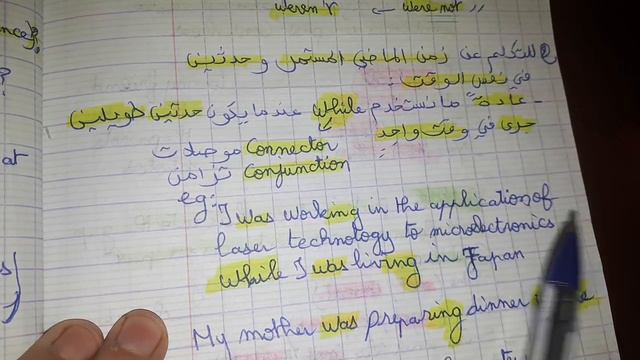 weren't ← were not
② للتكلم عن زمن الماضي المستمر وحدثين
في نفس الوقت:
- عادة ما نستخدم while عندما يكون حدثين طويلين
جرى في وقت واحد
Connector موصلات
Conjunction تزامن
eg: I was working in the application of
laser technology to microelectronics
While I was living in Japan
My mother was preparing dinner
at